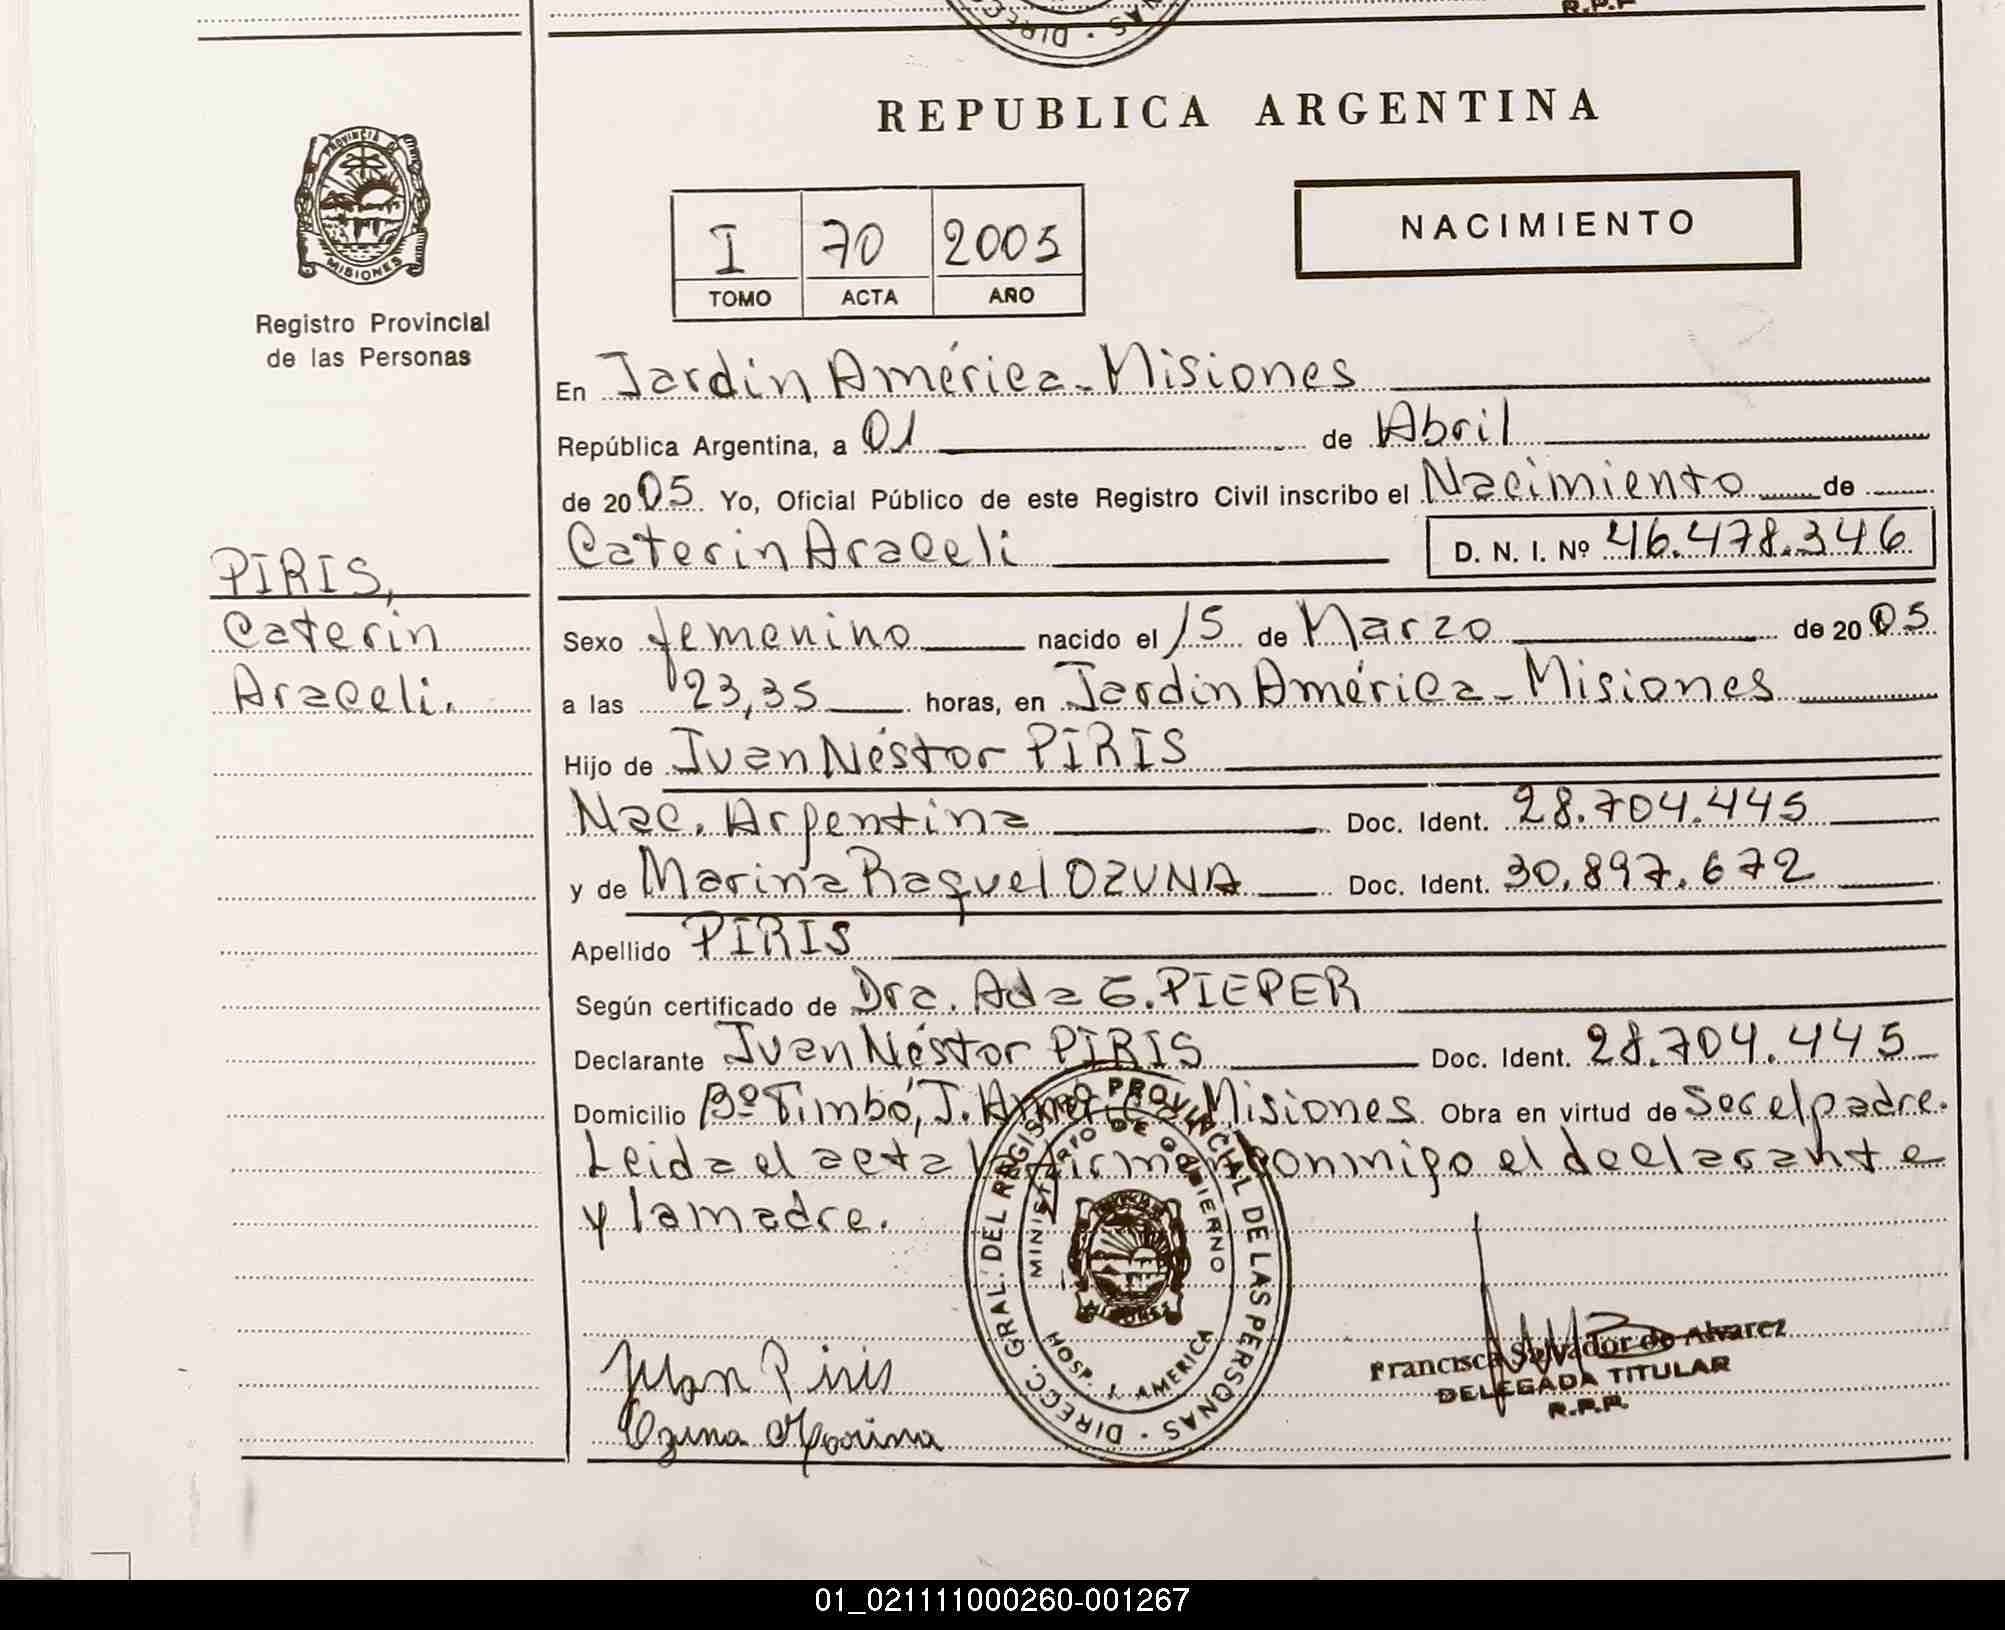 R.P.P
DIRECC
NAS
REPUBLICA ARGENTINA
PROVINCIA DE
MISIONES
I 70 2005
TOMO ACTA AÑO
NACIMIENTO
Registro Provincial
de las Personas
En Jardín América-Misiones
República Argentina, a 01 de Abril
de 2005 Yo, Oficial Público de este Registro Civil inscribo el Nacimiento de
Caterin Araceli D. N. I. Nº 46.478.346
PIRIS,
Caterin
Araceli.
Sexo femenino nacido el 15 de Marzo de 2005
a las 23,35 horas, en Jardín América-Misiones
Hijo de Juan Néstor PIRIS
Nac. Argentina Doc. Ident. 28.704.445
y de Marina Raquel OZUNA Doc. Ident. 30.897.672
Apellido PIRIS
Según certificado de Dra. Ada E. PIEPER
Declarante Juan Néstor PIRIS Doc. Ident. 28.704.445
Domicilio Bº Timbó, J. América Misiones Obra en virtud de Ser el padre.
Leida el acta la firman conmigo el declarante
y la madre.
DIRECC. GRAL. DEL REGISTRO PROVINCIAL DE LAS PERSONAS
MINISTERIO DE GOBIERNO
HOSP. J. AMERICA
MISIONES
Juan Piris
Ozuna Marina
Francisca Salvador de Alvarez
DELEGADA TITULAR
R.P.P.
01_021111000260-001267